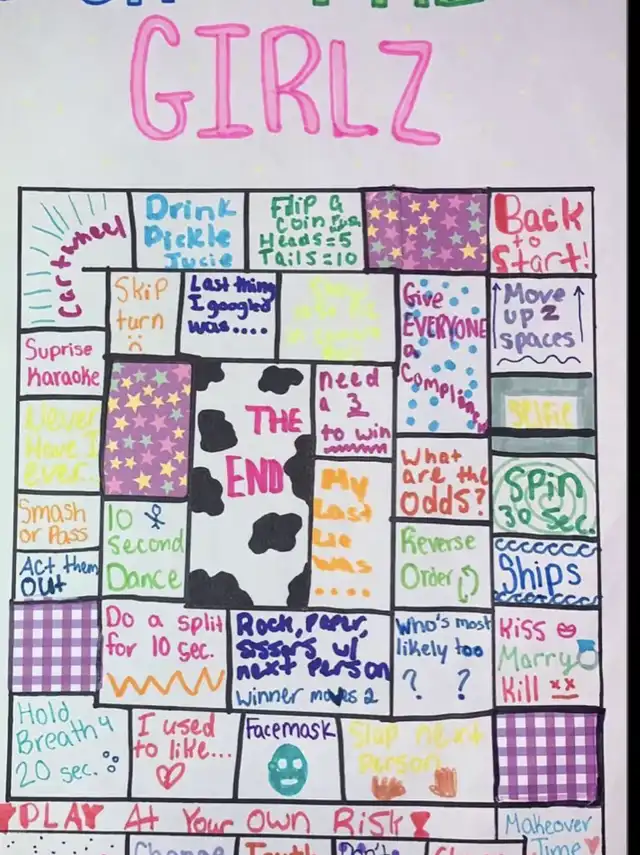 GIRLZ
Cartwheel
Drink
Pickle
Jucie
Flip a
Coin
Heads=5
Tails=10
Back
to
Start!
Skip
turn
Last thing
I googled
was....
Give
EVERYONE
a
Compliment
Move
up 2
spaces
Suprise
Karaoke
THE
END
need
a 3
to win
Selfie
Never
Have I
ever...
What
are the
odds?
Spin
30 Sec.
Smash
or Pass
10
Second
Dance
My
Last
Lie
was
....
Reverse
Order
Act them
Out
Ships
Do a split
for 10 sec.
Rock, Paper,
sssors w/
next Person
Winner moves 2
Who's most
likely too
? ?
Kiss
Marry
Kill xx
Hold
Breath 4
20 sec.
I used
to like...
Facemask
Slap next
Person
PLAY At Your Own Risk
Makeover
Time
Change
Truth
Don't